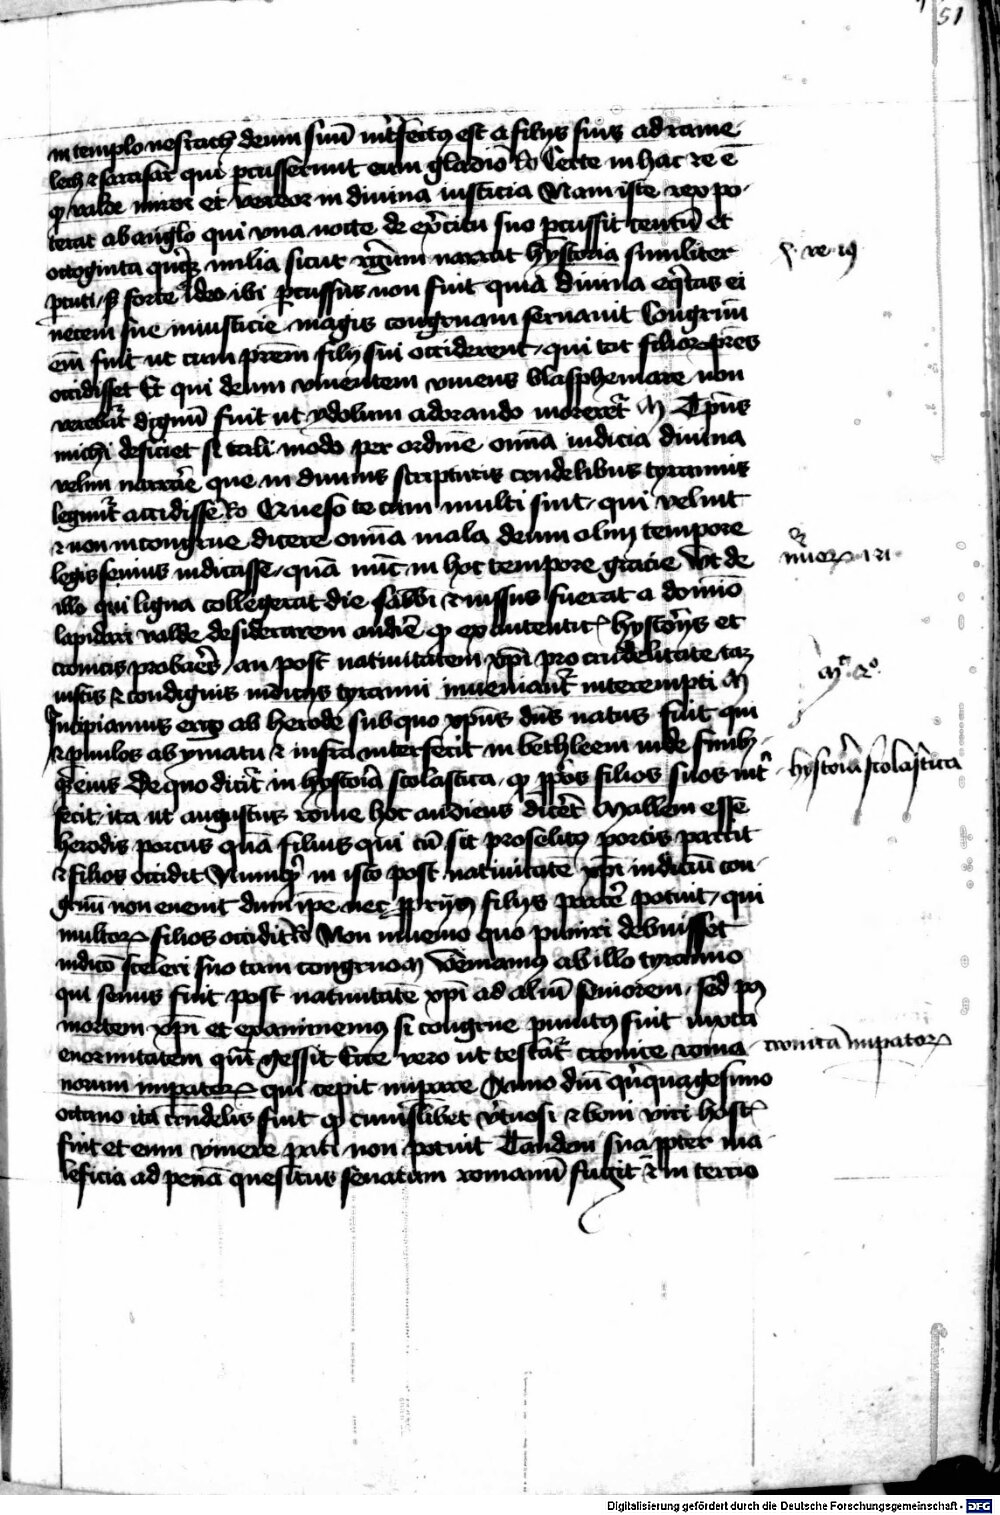 51
in templo nestrach deum suum int̄fectus est a filiis suis adrame-
lech et sarasar qui p̄cusserunt eum gladio Ro Certe in hac re ē
ꝙ valde miror et vereor in divina iusticia Nam iste rex po-
terat ab anglo qui una nocte de exercitu suo p̄cussit centum et
octoginta quīꝫ milia sicut regum narrat hystoria similiter
p̄cuti / sꝫ forte ideo ibi p̄cussus non fuit quia divina eq̄tas ei
necem sue iniusticie magis congruam servavit Congruū
em̄ fuit ut cum prēm filii sui occiderent / qui tot filioꝝ prēs
occidisset Et qui deum viventem vivens blasphemare non
verebat̄ dignū fuit ut ydolum adorando moreret̄ M Tp̄us
michi deficiet si tali modo per ordinē om̄ia iudicia divina
velim narrare que in divinis scripturis crudelibus tyrannis
legunt̄ accidisse Ro Queso te cum multi sint / qui velint
et non incongrue dicere om̄ia mala deum olim tempore
legis severius iudicasse / quā nūc in hoc tempore gracie Ut de
illo qui ligna collegerat die sabbi et iussus fuerat a domino
lapidari valde desiderarem audire ꝙ ex autenticis hystoriis et
cronicis probares / an post nativitatem xp̄i pro crudelitate taꝫ
iustis et condignis iudiciis tyranni inveniant̄ interempti M
Incipiamus ergo ab herode sub quo xp̄us dn̄s natus fuit qui
et parvulos ab ymatu et infra interfecit in bethleem inde finib-
ꝫ eius De quo dicit̄ in hystoria scolastica / ꝙ p̄prios filios suos int̄-
fecit / ita ut augustus rome hoc audiens diceret Mallem esse
herodis porcus quā filius qui cū sit proselitus porcis parcit
et filios occidit Numquid in isto post nativitatē xp̄i iudiciū con-
gruū non evenit dum ip̄e nec p̄priis filiis parcere potuit / qui
multoꝝ filios occidit Ro Non invenio quo puniri debuisset
iudicio sceleri suo tam congruo M Veniamus ab illo tyranno
qui sevus fuit post nativitatē xp̄i ad aliū seviorem / sed post
mortem xp̄i et examinemus si congrue punitus fuit iuxta
enormitatem quā gessit Ecce nero ut testat̄ cronice roma-
norum imp̄atoꝝ qui cepit imp̄are Anno dn̄i quinquagesimo
octavo ita crudelis fuit ꝙ cuiuslibet virtuosi et boni viri hostis
fuit et eum vivere pati non potuit Tandem sua propter ma-
leficia ad penā quesitus senatum romanū fugit et in tercio
4 re 19
nuer 15
M R
hystoria scolastica
cronica imp̄atoꝝ
Digitalisierung gefördert durch die Deutsche Forschungsgemeinschaft - DFG